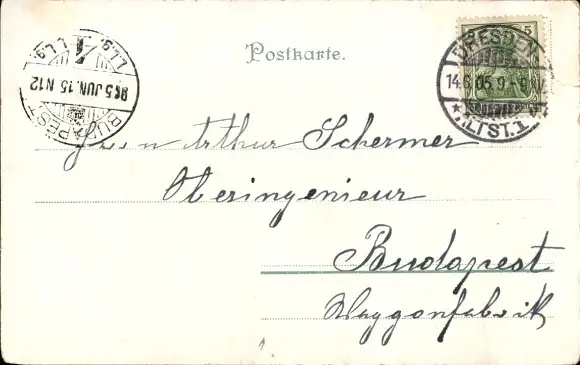 Postkarte.
5
DRESDEN
14.6.05.9-
* ALTST. 1
BUDAPEST
905 JUN. 15 N12
Herrn Arthur Schermer
Oberingenieur
Budapest
Waggonfabrik